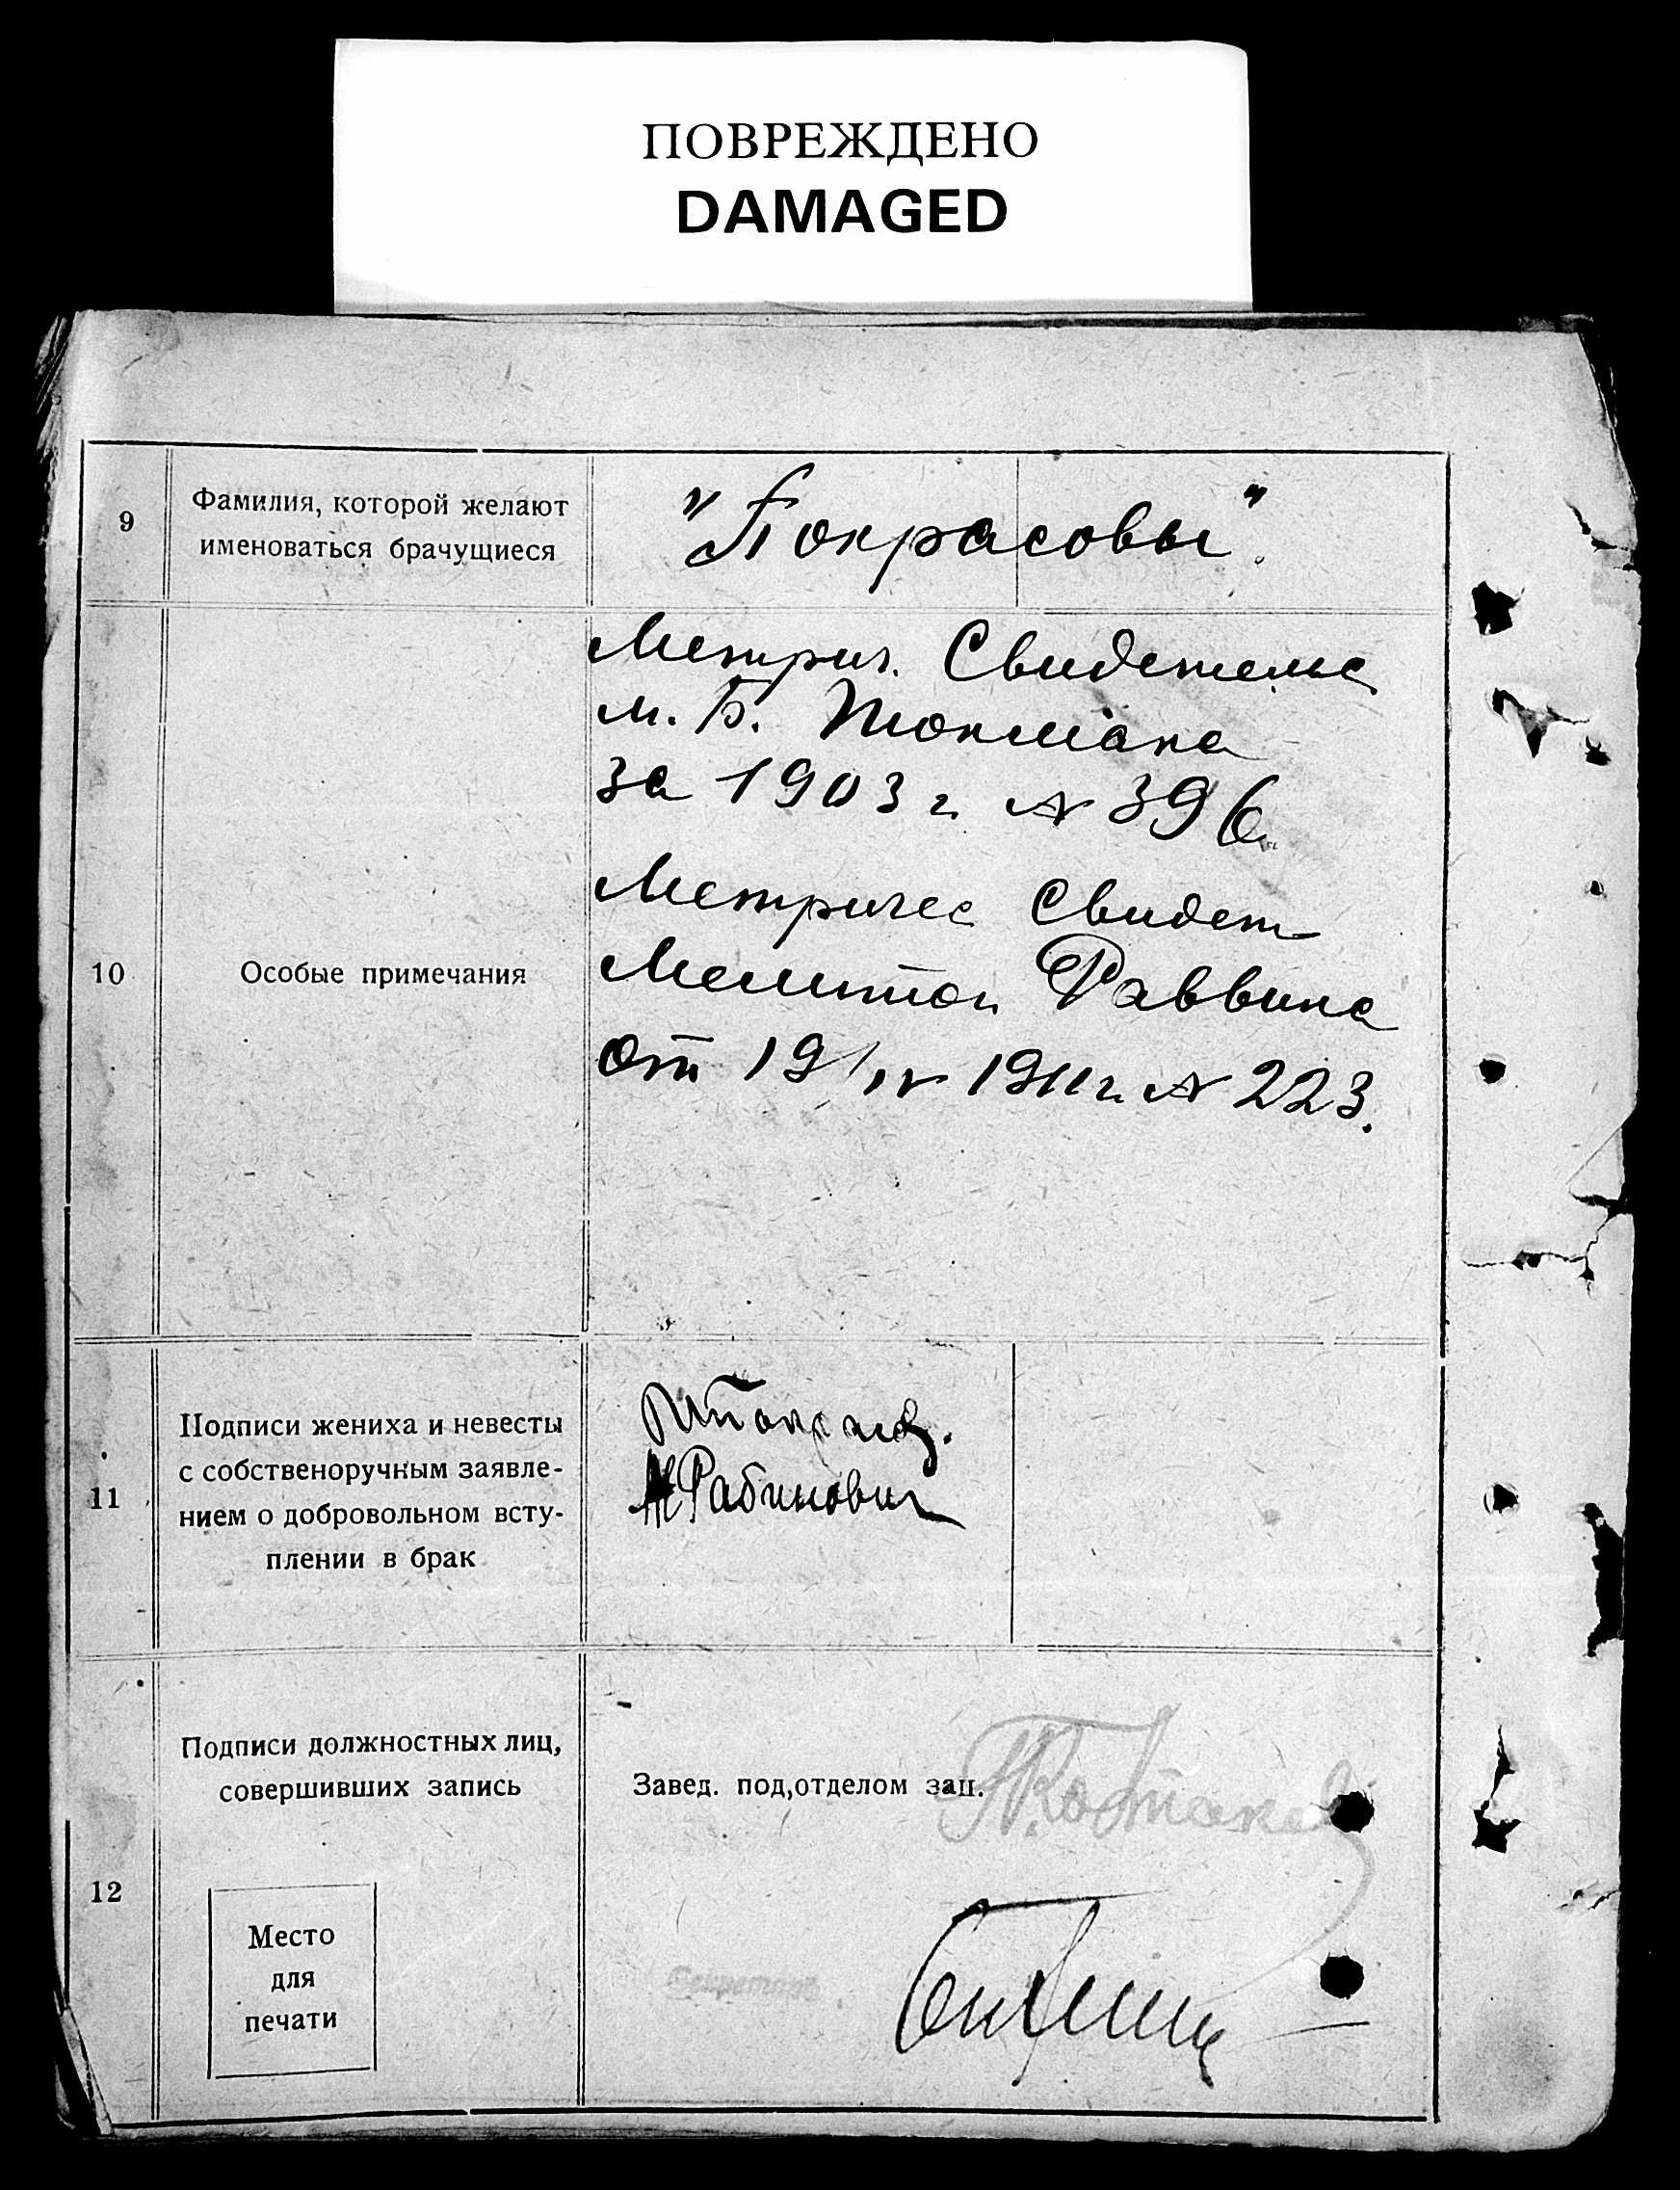 ПОВРЕЖДЕНО
DAMAGED
9
Фамилия, которой желают
именоваться брачущиеся
"Покрасовы".
10
Особые примечания
Метрич. Свидетельс
м. Б. Токмака
за 1903 г. № 396.
Метричес Свидет
Мелитоп Раввина
от 19/IV 1911 г. № 223.
11
Подписи жениха и невесты
с собственоручным заявле-
нием о добровольном всту-
плении в брак
Рабинович
12
Подписи должностных лиц,
совершивших запись
Завед. под,отделом зап.
Место
для
печати
Секретарь